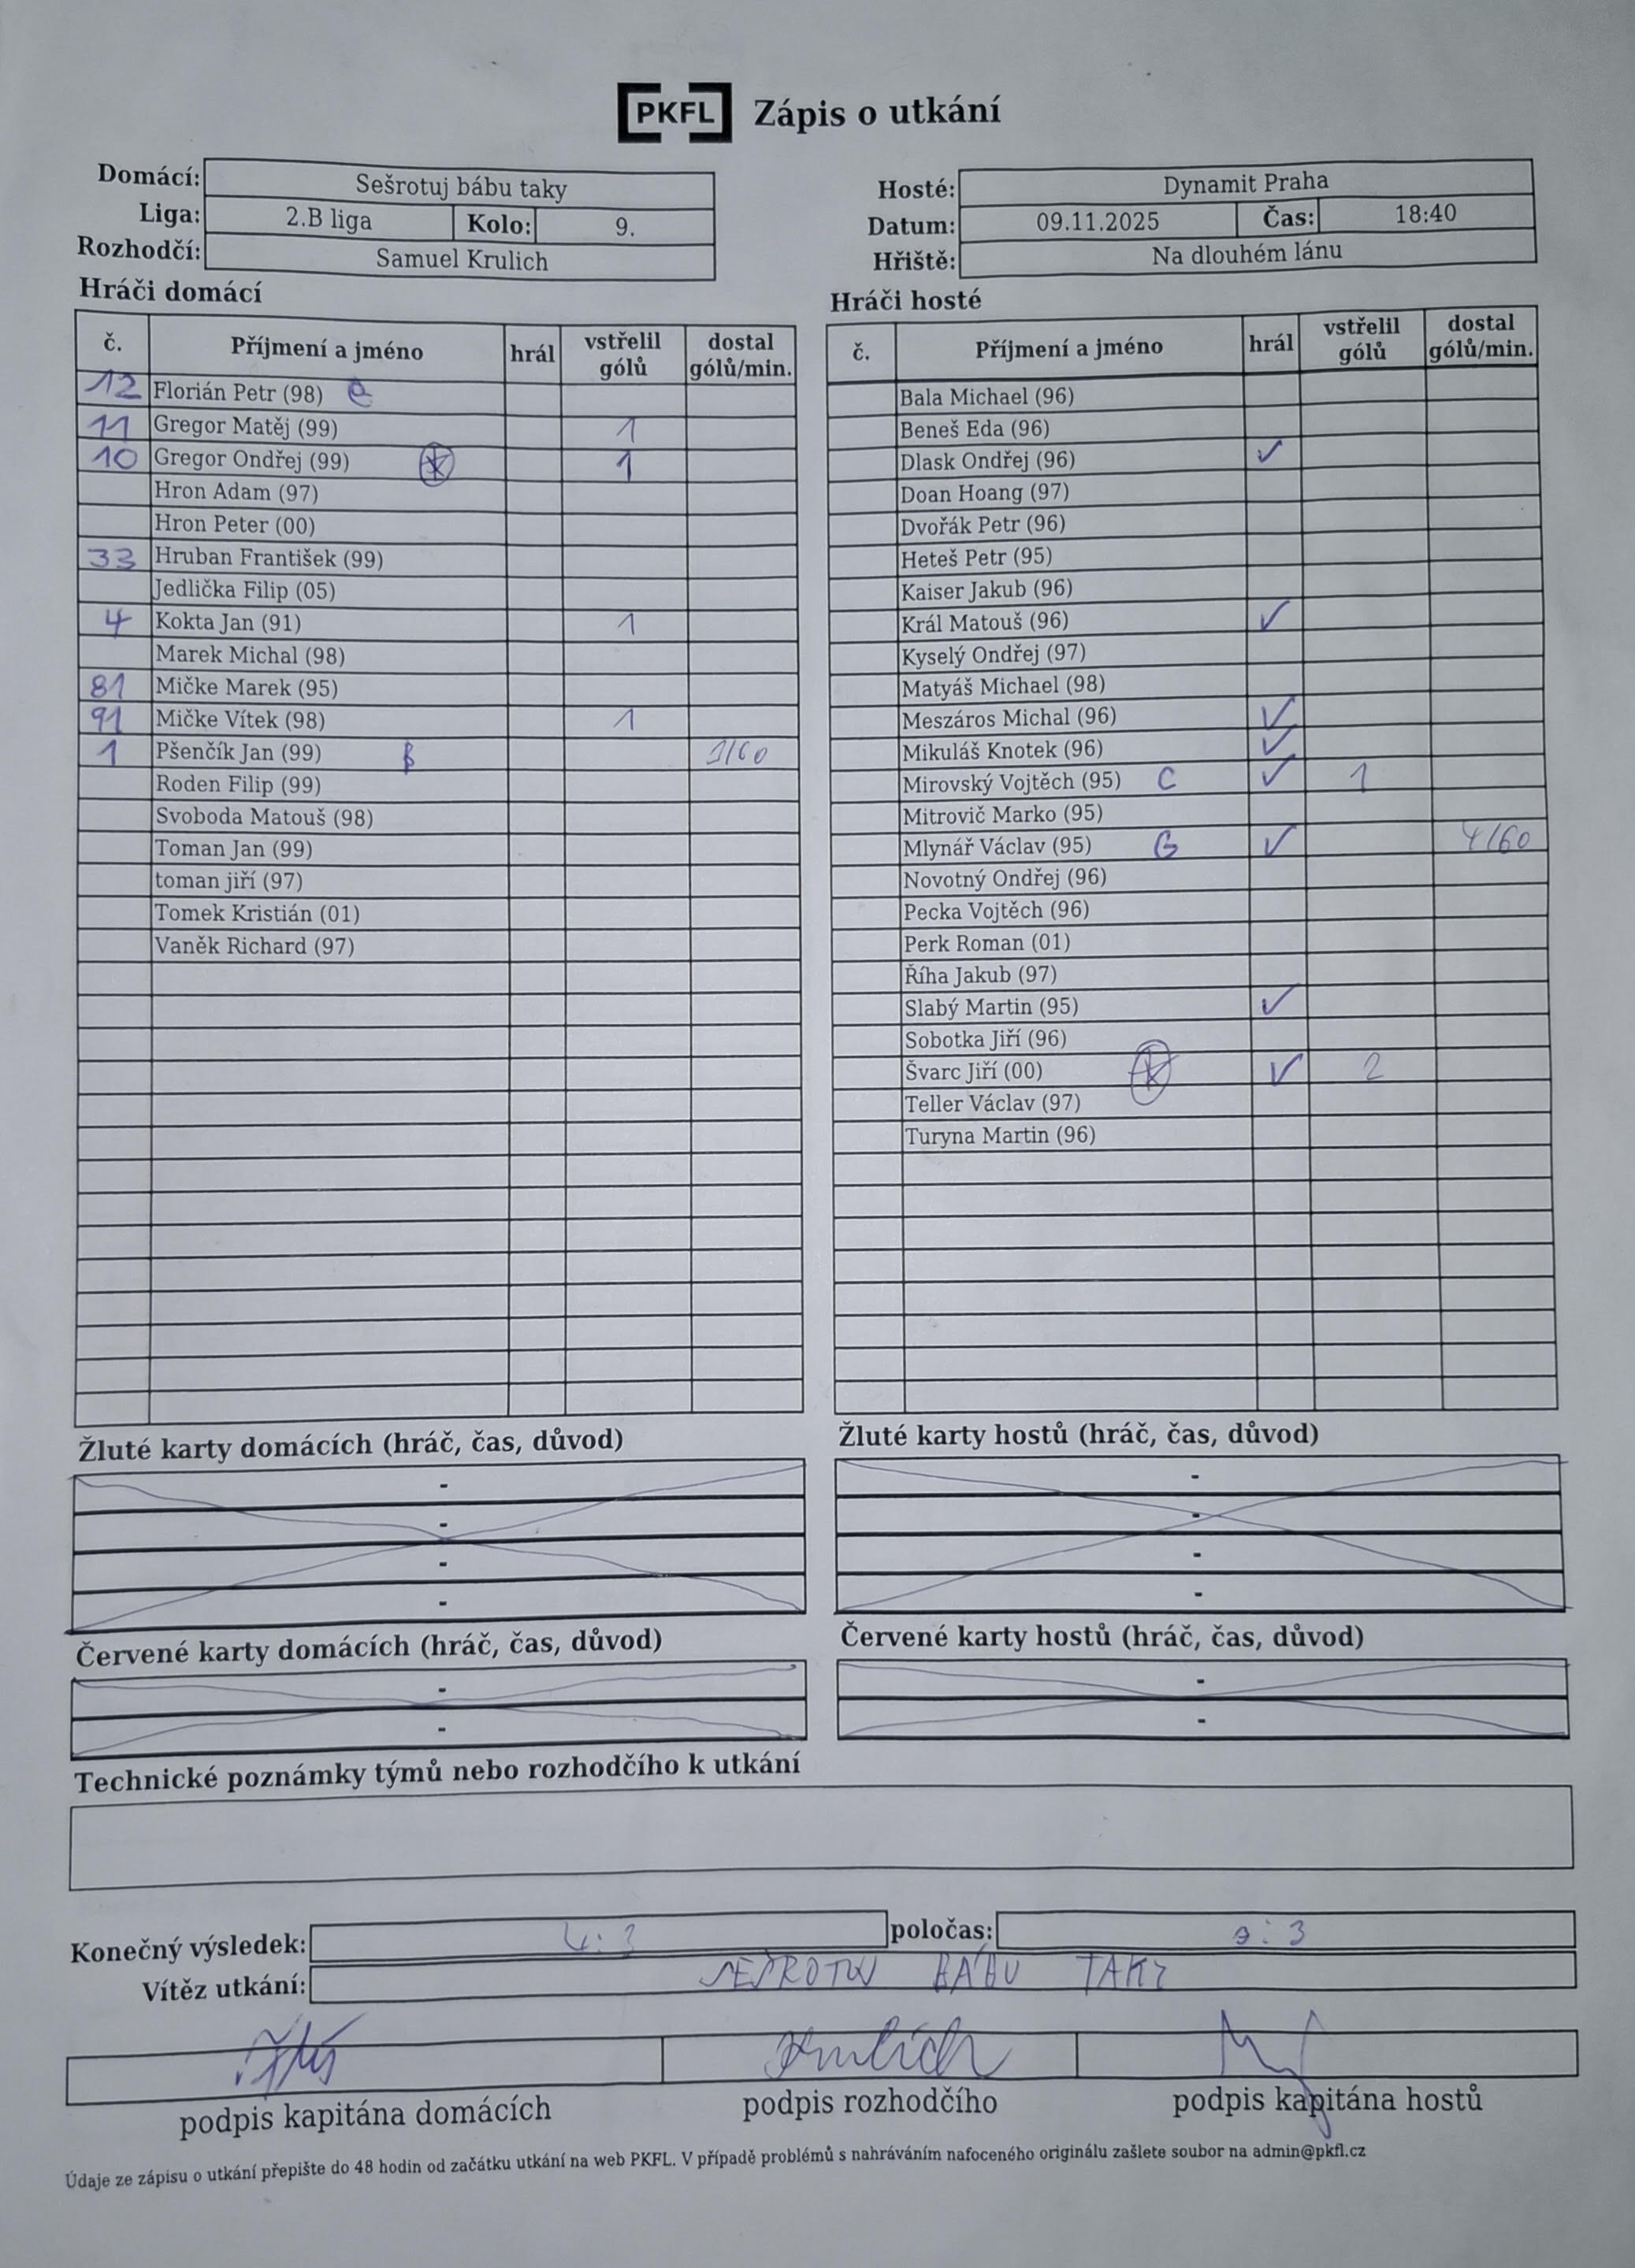 PKFL Zápis o utkání
Domácí: Sešrotuj bábu taky
Liga: 2.B liga Kolo: 9.
Rozhodčí: Samuel Krulich
Hosté: Dynamit Praha
Datum: 09.11.2025 Čas: 18:40
Hřiště: Na dlouhém lánu
Hráči domácí
č. Příjmení a jméno hrál vstřelil gólů dostal gólů/min.
12 Florián Petr (98) C
11 Gregor Matěj (99) 1
10 Gregor Ondřej (99) 1
Hron Adam (97)
Hron Peter (00)
33 Hruban František (99)
Jedlička Filip (05)
4 Kokta Jan (91) 1
Marek Michal (98)
81 Mičke Marek (95)
91 Mičke Vítek (98) 1
1 Pšenčík Jan (99) 3/60
Roden Filip (99)
Svoboda Matouš (98)
Toman Jan (99)
toman jiří (97)
Tomek Kristián (01)
Vaněk Richard (97)
Hráči hosté
č. Příjmení a jméno hrál vstřelil gólů dostal gólů/min.
Bala Michael (96)
Beneš Eda (96)
Dlask Ondřej (96) ✓
Doan Hoang (97)
Dvořák Petr (96)
Heteš Petr (95)
Kaiser Jakub (96)
Král Matouš (96) ✓
Kyselý Ondřej (97)
Matyáš Michael (98)
Meszáros Michal (96) ✓
Mikuláš Knotek (96) ✓
Mirovský Vojtěch (95) C ✓ 1
Mitrovič Marko (95)
Mlynář Václav (95) G ✓ 4/60
Novotný Ondřej (96)
Pecka Vojtěch (96)
Perk Roman (01)
Říha Jakub (97)
Slabý Martin (95) ✓
Sobotka Jiří (96)
Švarc Jiří (00) ✓ 2
Teller Václav (97)
Turyna Martin (96)
Žluté karty domácích (hráč, čas, důvod)
-
-
-
-
Žluté karty hostů (hráč, čas, důvod)
-
-
-
-
Červené karty domácích (hráč, čas, důvod)
-
-
Červené karty hostů (hráč, čas, důvod)
-
-
Technické poznámky týmů nebo rozhodčího k utkání
Konečný výsledek: 4:3 poločas: : 3
Vítěz utkání: SEŠROTUJ BÁBU TAKY
Krulich
podpis kapitána domácích podpis rozhodčího podpis kapitána hostů
Údaje ze zápisu o utkání přepište do 48 hodin od začátku utkání na web PKFL. V případě problémů s nahráváním nafoceného originálu zašlete soubor na admin@pkfl.cz